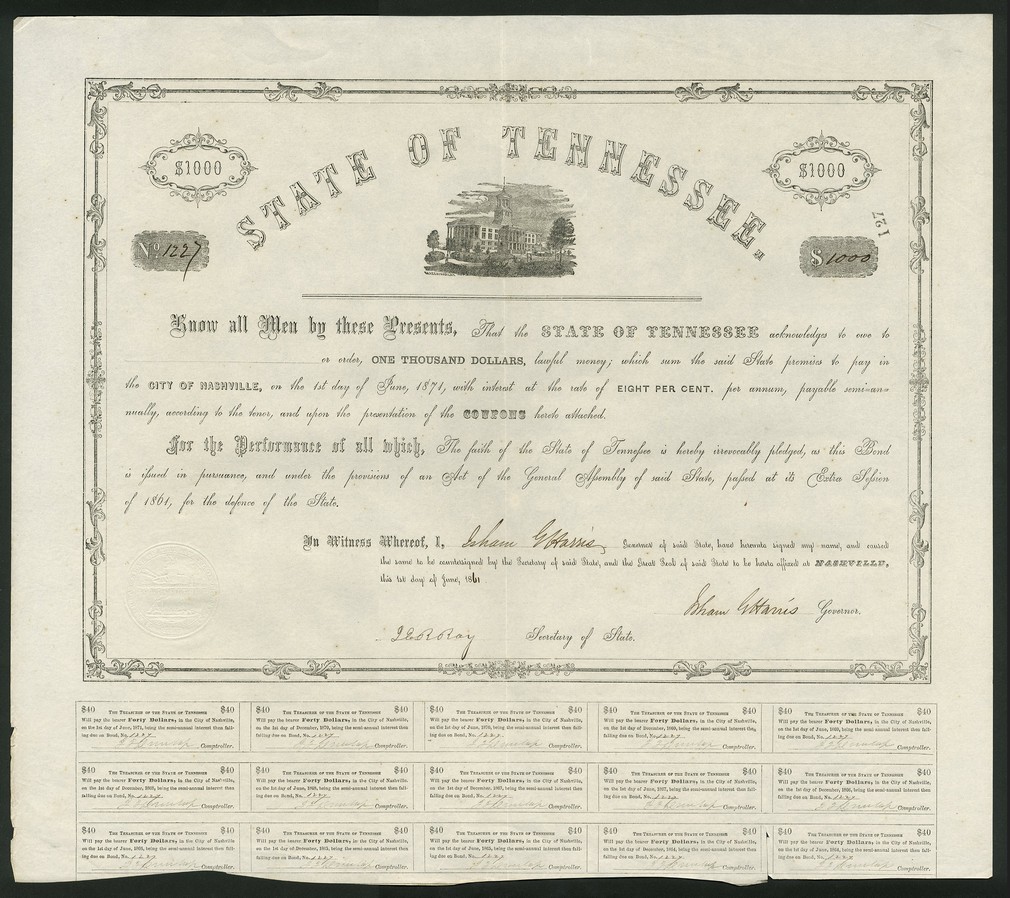 STATE OF TENNESSEE.
$1000
$1000
127
No. 1227
$ 1000
Know all Men by these Presents, That the STATE OF TENNESSEE acknowledges to owe to
or order, ONE THOUSAND DOLLARS, lawful money; which sum the said State promises to pay in
the CITY OF NASHVILLE, on the 1st day of June, 1871, with interest at the rate of EIGHT PER CENT. per annum, payable semi-an-
nually, according to the tenor, and upon the presentation of the COUPONS hereto attached.
For the Performance of all which, The faith of the State of Tennessee is hereby irrevocably pledged, as this Bond
is issued in pursuance, and under the provisions of an Act of the General Assembly of said State, passed at its Extra Session
of 1861, for the defence of the State.
In Witness Whereof, I, Isham G Harris, Governor of said State, have hereunto signed my name, and caused
the same to be countersigned by the Secretary of said State, and the Great Seal of said State to be hereto affixed at NASHVILLE,
this 1st day of June, 1861
Isham G Harris Governor.
J E R Ray Secretary of State.
$40 THE TREASURER OF THE STATE OF TENNESSEE $40
Will pay the bearer Forty Dollars, in the City of Nashville,
on the 1st day of June, 1871, being the semi-annual interest then fall-
ing due on Bond, No. 1227
Comptroller.
$40 THE TREASURER OF THE STATE OF TENNESSEE $40
Will pay the bearer Forty Dollars, in the City of Nashville,
on the 1st day of December, 1870, being the semi-annual interest then
falling due on Bond, No. 1227
Comptroller.
$40 THE TREASURER OF THE STATE OF TENNESSEE $40
Will pay the bearer Forty Dollars, in the City of Nashville,
on the 1st day of June, 1870, being the semi-annual interest then fall-
ing due on Bond, No. 1227
Comptroller.
$40 THE TREASURER OF THE STATE OF TENNESSEE $40
Will pay the bearer Forty Dollars, in the City of Nashville,
on the 1st day of December, 1869, being the semi-annual interest then
falling due on Bond, No. 1227
Comptroller.
$40 THE TREASURER OF THE STATE OF TENNESSEE $40
Will pay the bearer Forty Dollars, in the City of Nashville,
on the 1st day of June, 1869, being the semi-annual interest then fall-
ing due on Bond, No. 1227
Comptroller.
$40 THE TREASURER OF THE STATE OF TENNESSEE $40
Will pay the bearer Forty Dollars, in the City of Nashville,
on the 1st day of December, 1868, being the semi-annual interest then
falling due on Bond, No. 1227
Comptroller.
$40 THE TREASURER OF THE STATE OF TENNESSEE $40
Will pay the bearer Forty Dollars, in the City of Nashville,
on the 1st day of June, 1868, being the semi-annual interest then fall-
ing due on Bond, No. 1227
Comptroller.
$40 THE TREASURER OF THE STATE OF TENNESSEE $40
Will pay the bearer Forty Dollars, in the City of Nashville,
on the 1st day of December, 1867, being the semi-annual interest then
falling due on Bond, No. 1227
Comptroller.
$40 THE TREASURER OF THE STATE OF TENNESSEE $40
Will pay the bearer Forty Dollars, in the City of Nashville,
on the 1st day of June, 1867, being the semi-annual interest then fall-
ing due on Bond, No. 1227
Comptroller.
$40 THE TREASURER OF THE STATE OF TENNESSEE $40
Will pay the bearer Forty Dollars, in the City of Nashville,
on the 1st day of December, 1866, being the semi-annual interest then
falling due on Bond, No. 1227
Comptroller.
$40 THE TREASURER OF THE STATE OF TENNESSEE $40
Will pay the bearer Forty Dollars, in the City of Nashville,
on the 1st day of June, 1866, being the semi-annual interest then fall-
ing due on Bond, No. 1227
Comptroller.
$40 THE TREASURER OF THE STATE OF TENNESSEE $40
Will pay the bearer Forty Dollars, in the City of Nashville,
on the 1st day of December, 1865, being the semi-annual interest then
falling due on Bond, No. 1227
Comptroller.
$40 THE TREASURER OF THE STATE OF TENNESSEE $40
Will pay the bearer Forty Dollars, in the City of Nashville,
on the 1st day of June, 1865, being the semi-annual interest then fall-
ing due on Bond, No. 1227
Comptroller.
$40 THE TREASURER OF THE STATE OF TENNESSEE $40
Will pay the bearer Forty Dollars, in the City of Nashville,
on the 1st day of December, 1864, being the semi-annual interest then
falling due on Bond, No. 1227
Comptroller.
$40 THE TREASURER OF THE STATE OF TENNESSEE $40
Will pay the bearer Forty Dollars, in the City of Nashville,
on the 1st day of June, 1864, being the semi-annual interest then fall-
ing due on Bond, No. 1227
Comptroller.